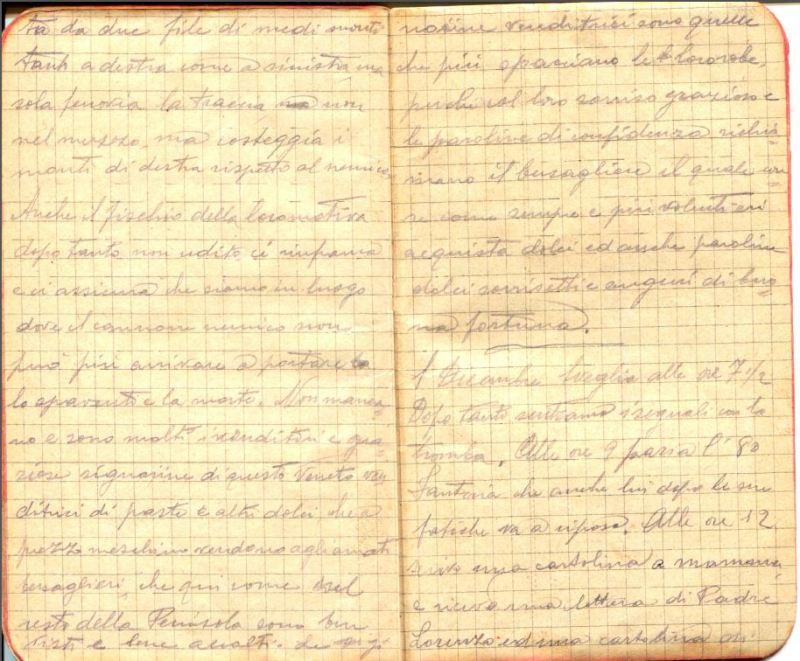 ta da due file di medi monti
tanto a destra come a sinistra ma
sola ferrovia la traccia non
nel mezzo, ma costeggia i
monti di destra rispetto al nemico
Anche il fischio della locomotiva
dopo tanto non udito ci rinfranca
e ci assicura che siamo in luogo
dove il cannone nemico non
può più arrivare a portare
lo spavento e la morte. Non manca-
no e sono molti i venditori e gra-
ziose signorine di questo Veneto ven
ditrici di paste e altri dolci che a
prezzo meschino vendono agli amati
bersaglieri, che qui come nel
resto della Penisola sono ben
visti e bene accolti. Le sig
norine venditrici sono quelle
che più spacciano le loro robe,
perché col loro sorriso grazioso e
le paroline di confidenza richia-
mano il bersagliere il quale cor-
re come sempre e più volentieri
acquista dolci ed anche paroline
dolci sorrisetti e auguri di buo-
na fortuna.
1 Dicembre Sveglia alle ore 7 1/2
Dopo tanto sentiamo i segnali con la
tromba. Alle ore 9 passa l' 80
Fanteria che anche lui dopo le sue
fatiche va a riposo. Alle ore 12
scrivo una cartolina a mamma
e ricevo una lettera di Padre
Lorenzo ed una cartolina